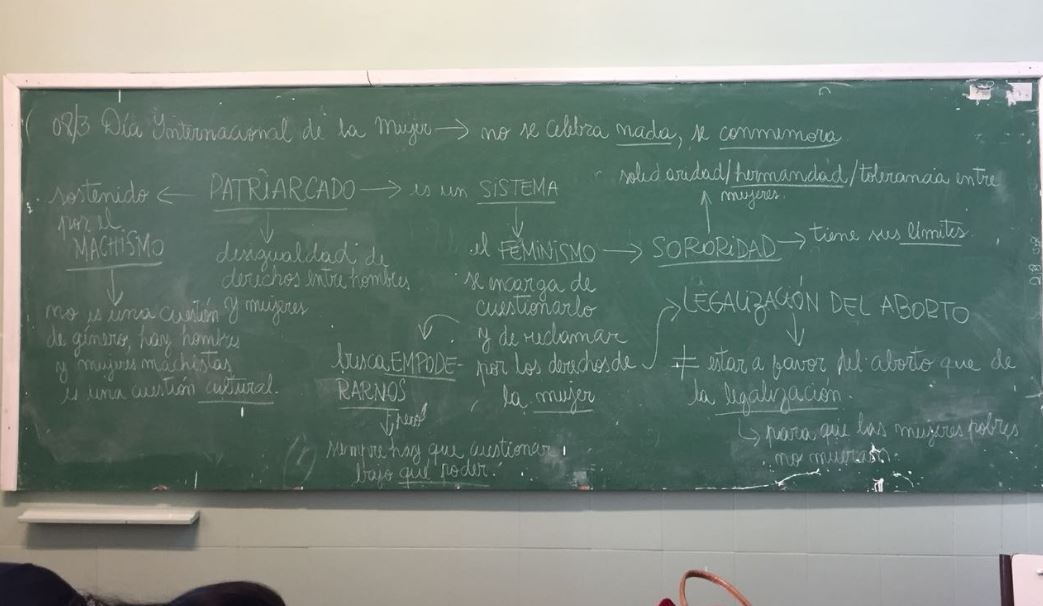 08/3 Día Internacional de la Mujer → no se celebra nada, se conmemora
sostenido ← PATRIARCADO → es un SISTEMA
por el
MACHISMO
no es una cuestión
de género, hay hombres
y mujeres machistas
es una cuestión cultural.
desigualdad de
derechos entre hombres
y mujeres
el FEMINISMO → SORORIDAD → tiene sus límites.
solidaridad/hermandad/tolerancia entre
mujeres.
se encarga de
cuestionarlo
y de reclamar
por los derechos de
la mujer
busca EMPODE-
RARNOS
pero
siempre hay que cuestionar
bajo qué poder.
LEGALIZACIÓN DEL ABORTO
≠ estar a favor del aborto que de
la legalización.
para que las mujeres pobres
no mueran.